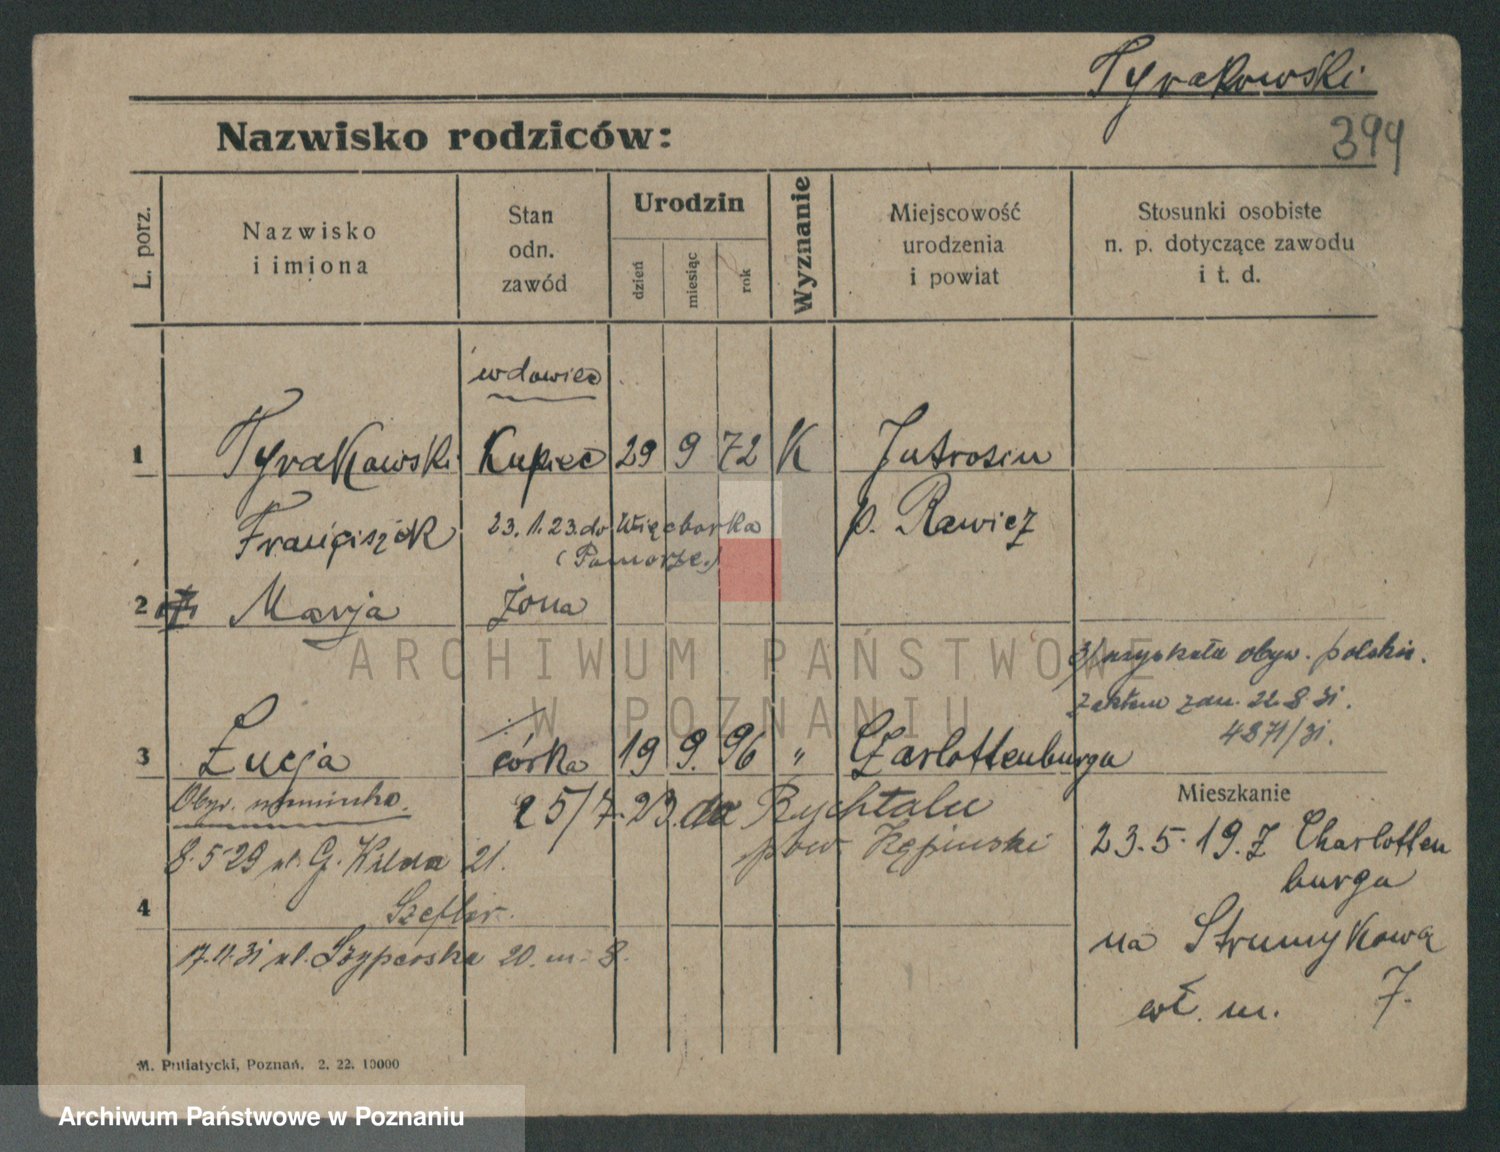 Tyrakowski
394
Nazwisko rodziców:
L. porz.
Nazwisko
i imiona
Stan
odn.
zawód
Urodzin
dzień
miesiąc
rok
Wyznanie
Miejscowość
urodzenia
i powiat
Stosunki osobiste
n. p. dotyczące zawodu
i t. d.
wdowiec
1 Tyrakowski Kupiec 29 9 72 K Jutrosin
Franciszek 23.1.23. do Więcborka p. Rawicz
(Pomorze.)
2 Marja żona
3/ uzyskała obyw. polskie.
22.8.31.
4871/31.
3 Łucja córka 19 9. 96 " Czarlottenburga
Obyw. niemiecka.
25/7.23. do Rychtalu
pow. Kępiński
8.5.29 ul. G. Wilda 21.
Szefler.
4
17.11.31 ul. Szyperska 20. m. 8.
Mieszkanie
23.5.19. Z Charlotten
burga
na Strumykowa
wł. m. 7.
M. Putiatycki, Poznań. 2. 22. 10000
ARCHIWUM PAŃSTWOWE
W POZNANIU
Archiwum Państwowe w Poznaniu